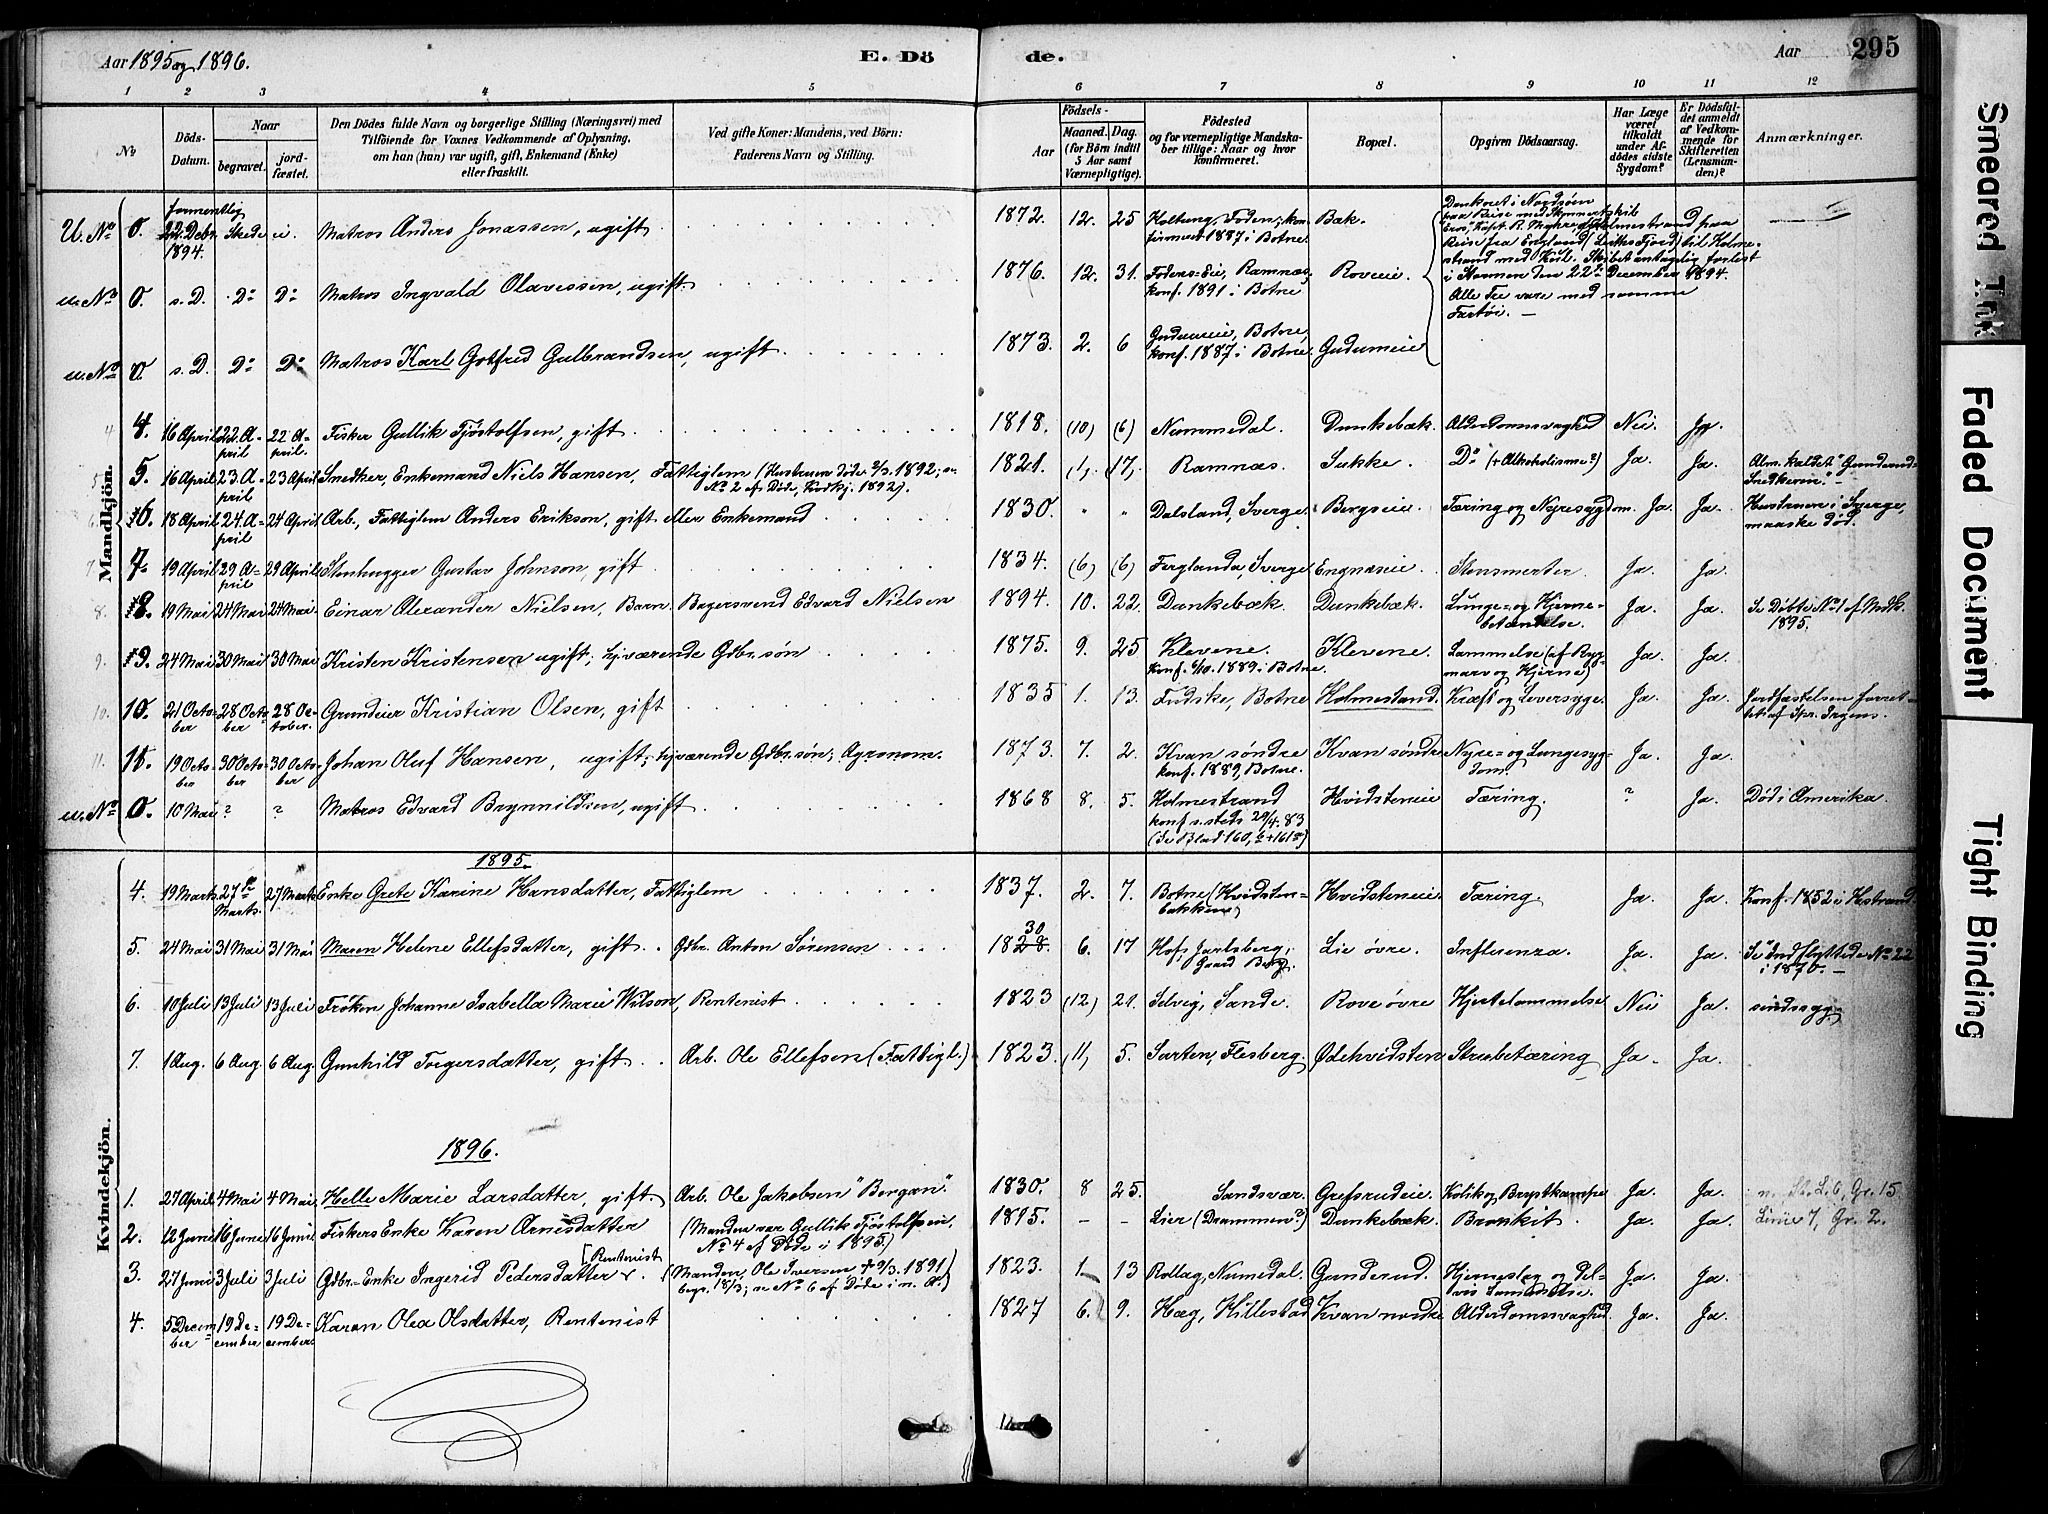 Aar 1895 og 1896.
E. Dö
de.
Aar
295
1 2 3 4 5 6 7 8 9 10 11 12
No
Döds-Datum.
Naar
begravet.
jord-fæstet.
Den Dödes fulde Navn og borgerlige Stilling (Næringsvei) med
Tilföiende for Voxnes Vedkommende af Oplysning,
om han (hun) var ugift, gift, Enkemand (Enke)
eller fraskilt.
Ved gifte Koner: Mandens, ved Börn:
Faderens Navn og Stilling.
Födsels-
Aar
Maaned. Dag.
(for Börn indtil
5 Aar samt
Værnepligtige).
Födested
og for værnepligtige Mandska-
ber tillige: Naar og hvor
konfirmeret.
Bopæl.
Opgiven Dödsaarsag.
Har Læge
været
tilkaldt
under Af-
dödes sidste
Sygdom?
Er Dödsfal-
det anmeldt
af Vedkom-
mende for
Skifteretten
(Lensman-
den)?
Anmærkninger.
Mandkjön.
U. No 0. formentlig 22 Debr. 1894. Skede ei. Matros Anders Jonassen, ugift 1872. 12. 25 Holtung, Foden; kon-
firmeret 1887 i Botne. Bak.
Druknet i Nordsøen
paa Reise med Skonnertskib
"Eros", Kapt. R. Myhre, af Holmestrand paa
Reise fra England (Leiths Fjord) til Holme-
strand med Kul. Skibet antagelig forlist
i Stormen den 22de December 1894.
Alle Tre vare med samme
Fartøi. —
u. No 0. s. D. Do Do Matros Ingvald Olavessen, ugift. 1876. 12. 31. Fodens-eie, Ramnæs,
konf. 1891 i Botne Roveeie.
u. No 0. s. D. Do Do Matros Karl Gotfred Gulbrandsen, ugift. 1873. 2. 6 Gudumeie, Botne,
konf. 1887 i Botne. Gudumeie
4. 16 April 22. April 22 April. Fisker Gullik Tjøstolfsen, gift. 1818. (10) (6) Nummedal. Dunkebæk. Alderdomssvaghed Nei. Ja.
5. 16 April 23. April 23 April Snedker, Enkemand Niels Hansen, Fattiglem (Hustruen døde 2/3. 1892; se
No 2 af Døde, Kvdkj. 1892). 1821. (1, 17, Ramnæs. Sukke. Do (+ Alkoholisme?) Ja. Ja. Alm. kaldet "Gunderud-
Snedkeren". —
6. 18 April 24. April 24 April Arb., Fattiglem Anders Erikson, gift eller Enkemand 1830. " " Dalsland, Sverge. Bergseie. Tæring og Nyresygdom. Ja. Ja. Hustruen i Sverge,
maaske død.
7. 19 April 29 April 29 April Stenhugger Gustav Johnson, gift 1834. (6) (6) Ferglanda, Sverge Engnæseie. Stensmerter. Ja. Ja.
8. 19 Mai 24 Mai 24 Mai. Einar Alexander Nielsen, Barn. Bagersvend Edvard Nielsen 1894. 10. 22. Dunkebæk. Dunkebæk. Lunge- og Hjerne-
betændelse. Ja. Ja. Se Døbte No 1 af Mdk.
1895.
9. 24 Mai 30 Mai 30 Mai Kristen Kristensen ugift; hjværende Gdbr. søn 1875. 9. 25 Klevene.
konf. 6/10. 1889 i Botne. Klevene. Lammelse (af Ryg-
marv og Hjerne) Ja. Ja.
10. 21 October 28 October 28 October. Grundeier Kristian Olsen, gift 1835 1. 13. Fudske, Botne Holmestrand. Kræft og Leversyge. Ja. Ja. Jordfæstelsen forret-
tet af Spr. Irgens.
11. 19 October 30 October 30 October Johan Oluf Hansen, ugift; hjværende Gdbr. søn; Agronom. 1873. 7. 2. Kvan søndre
konf. 1889, Botne. Kvan søndre Nyre- og Lungesyg-
dom. Ja. Ja.
u. No 0. 10 Mai ? ? Matros Edvard Brynnildsen, ugift 1868 8. 5. Holmestrand
konf. s. steds 29/4. 83
(Se Blad 160, b + 161 a) Hvidsteneie Tæring. ? Ja. Død i Amerika.
Kvindekjön.
1895.
4. 19 Marts 27de Marts. 27 Marts Enke Grete Karine Hansdatter, Fattiglem 1837. 2. 7. Botne (Hvidsten-
bakken) Hvidsteneie. Tæring. Ja. Ja. Konf. 1852 i Hstrand.
5. 24 Mai 31 Mai 31 Mai Maren Helene Ellefsdatter, gift. Gdbr. Anton Sørensen 1828. 30 6. 17 Hof, Jarlsberg;
Gaard Berg. Lie øvre. Influenza. Ja. Ja. Se "Indflyttede No 22
i 1870. —
6. 10 Juli 13 Juli 13 Juli Frøken Johanne Isabella Marie Wilson, Rentenist 1823 (12) 21. Selvig, Sande. Rove øvre Hjertelammelse Nei Ja. sindssyg
7. 1 Aug. 6 Aug. 6 Aug. Gunhild Torgersdatter, gift. Arb. Ole Ellefsen (Fattigl.) 1823. 11, 5. Sarten, Flesberg. Ødehvidsten Strubetæring Ja. Ja.
1896.
1. 27 April. 4 Mai 4 Mai. Helle Marie Larsdatter, gift Arb. Ole Jakobsen "Borgan". 1830. 8 25. Sandsvær. Grefsrudeie. Kolik og Brystkrampe Ja. Ja. n. St. L. 6, Gr. 15.
2. 12 Juni 16 June 16 Junie Fiskers Enke Karen Arnesdatter (Manden var Gullik Tjøstolfsen,
No 4 af Døde i 1895.) 1895. - - Lier (Drammen?) Dunkebæk. Bronkit. Ja. Ja. Linie 7, Gr. 2.
3. 27 Juni 3 Juli 3 Juli Gdbr-Enke Ingerid Pedersdatter. [Rentenist (Manden, Ole Iversen + 9/3. 1891,
begr. 18/3; se No 6 af Døde i n. A.) 1823. 1. 13 Rollag, Numedal. Gunderud. Hjerneslag og Del-
vis Lammelse. Ja. Ja.
4. 5 December 19 December 19 December Karen Olea Olsdatter, Rentenist 1827 6. 9. Hæg, Hillestad Kvan nordre Alderdomssvaghed. Ja. Ja.
Smeared Ink
Faded Document
Tight Binding